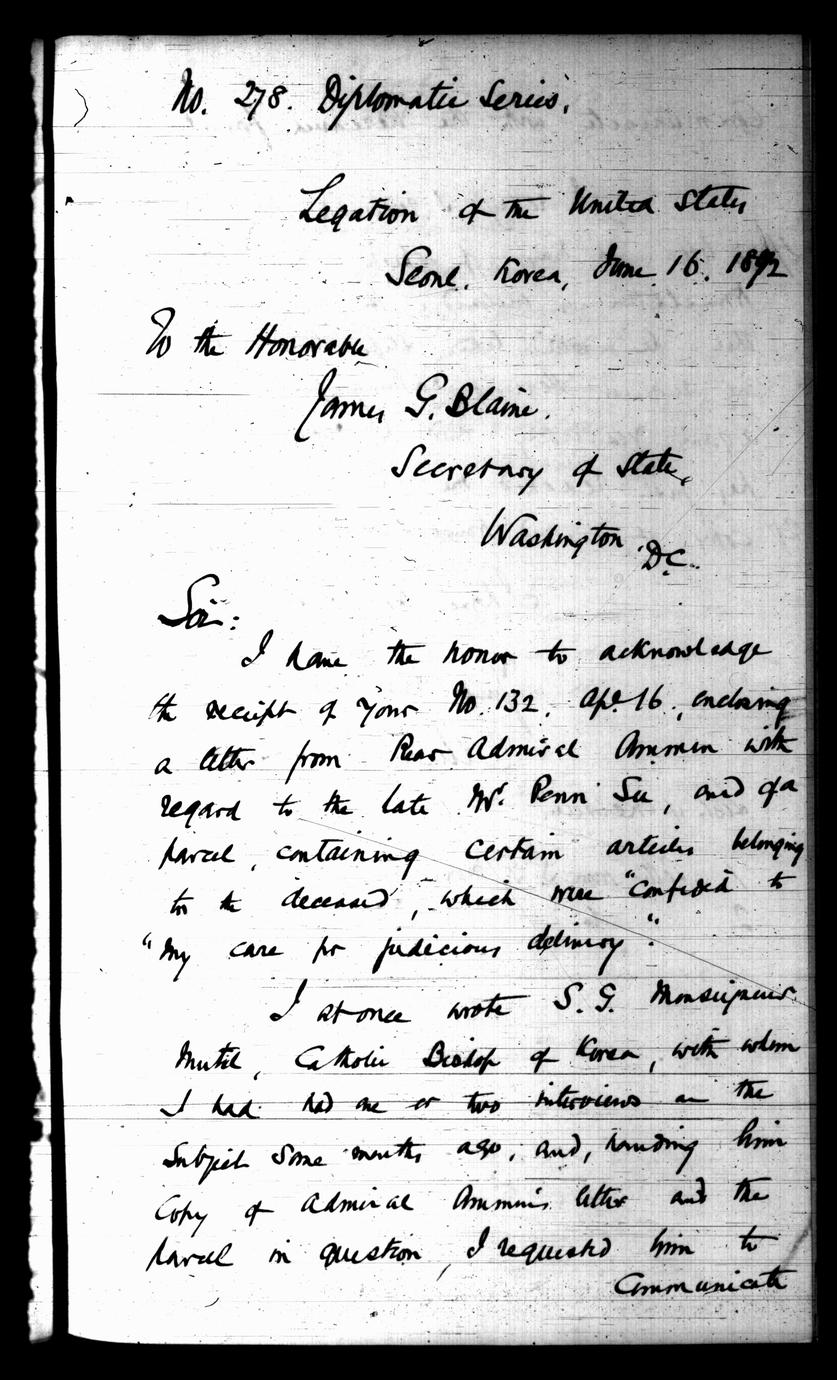 No. 278. Diplomatic Series.
Legation of the United States
Seoul, Korea, June 16. 1892
To the Honorable
James G. Blaine.
Secretary of State,
Washington D.C.
Sir:
I have the honor to acknowledge
the receipt of your No. 132, Apl. 16, enclosing
a letter from Rear Admiral Ammen with
regard to the late Mr. Penn Su, and of a
parcel, containing certain articles belonging
to the deceased, which were "confided to
"my care for judicious delivery".
I at once wrote S. G. Monseigneur
Mutel, Catholic Bishop of Korea, with whom
I had had one or two interviews on the
subject some months ago, and, handing him
copy of Admiral Ammen's letter and the
parcel in question, I requested him to
communicate